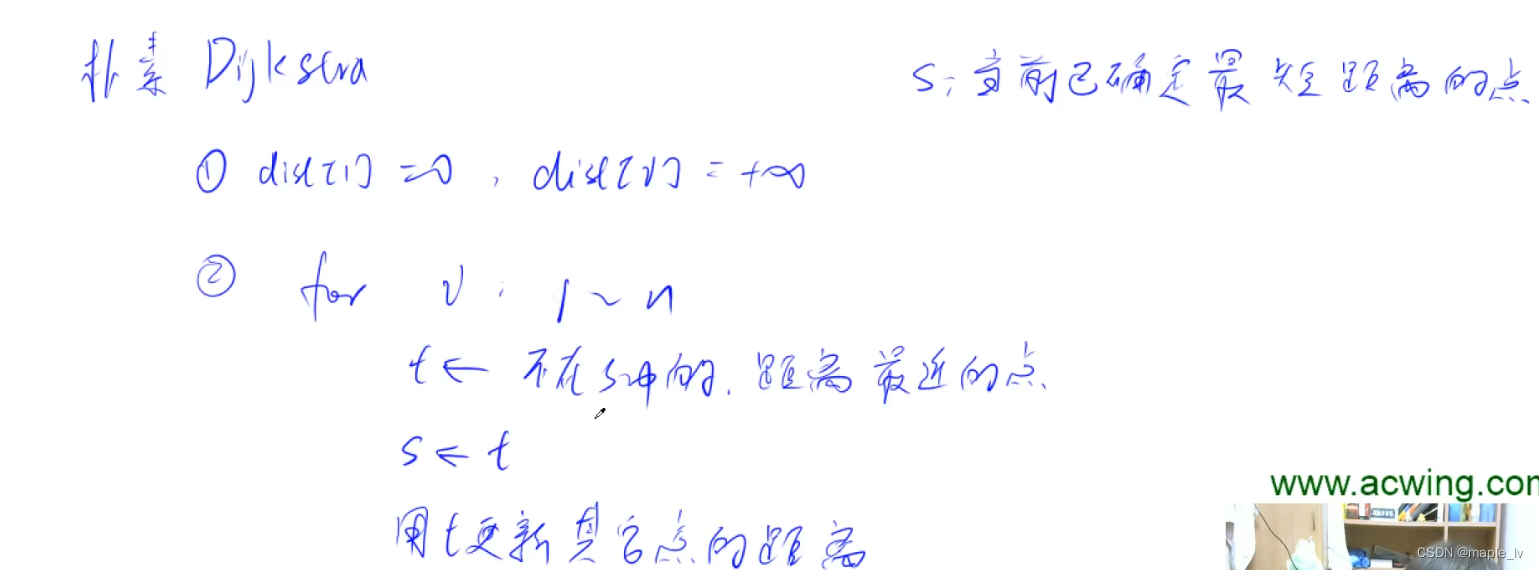 朴素 Dijkstra
S:当前已确定最短距离的点
① dist[1] = 0, dist[v] = +∞
② for v: 1 ~ n
t ← 不在s中的,距离最近的点.
s ← t
用t更新其它点的距离
www.acwing.com
CSDN @maple_lv